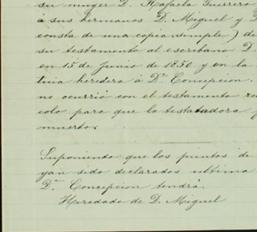 su muger D. Rafaela Guerrero
á sus hermanos D. Miguel y D
consta de una copia simple) de
su testamento al escribano D.
en 15 de Junio de 1850 y en la
tuia heredera á Dª Concepcion.
no ocurrió con el testamento re
solo para que la testadora y
muertos.
Suponiendo que los puntos de
yan sido declarados ultima
Dª Concepcion tendrá
Heredado de D. Miguel